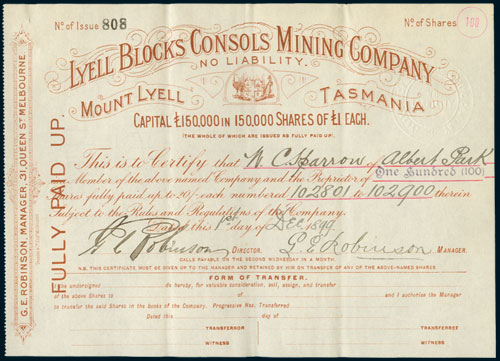 No. of Issue 808
No. of Shares 100
LYELL BLOCKS CONSOLS MINING COMPANY
NO LIABILITY.
MOUNT LYELL TASMANIA
CAPITAL £150,000 IN 150,000 SHARES OF £1 EACH.
(THE WHOLE OF WHICH ARE ISSUED AS FULLY PAID UP.)
This is to Certify that W. C. Sparrow of Albert Park
Member of the above named Company and the Proprietor of One Hundred (100)
Shares fully paid up to 20/- each numbered 102801 to 102900 therein
Subject to the Rules and Regulations of the Company.
Dated this 1st day of Dec 1899
DIRECTOR. G. E. Robinson MANAGER.
CALLS PAYABLE ON THE SECOND WEDNESDAY IN A MONTH.
N.B. THIS CERTIFICATE MUST BE GIVEN UP TO THE MANAGER AND RETAINED BY HIM ON TRANSFER OF ANY OF THE ABOVE-NAMED SHARES.
FORM OF TRANSFER.
the undersigned do hereby, for valuable consideration, sell, assign, and transfer
all the above Shares to of and I authorise the Manager
to transfer the said Shares in the books of the Company. Progressive Nos. Transferred
Dated this day of
TRANSFEROR TRANSFEREE
WITNESS WITNESS
G. E. ROBINSON, MANAGER, 31, QUEEN ST MELBOURNE
FULLY PAID UP.